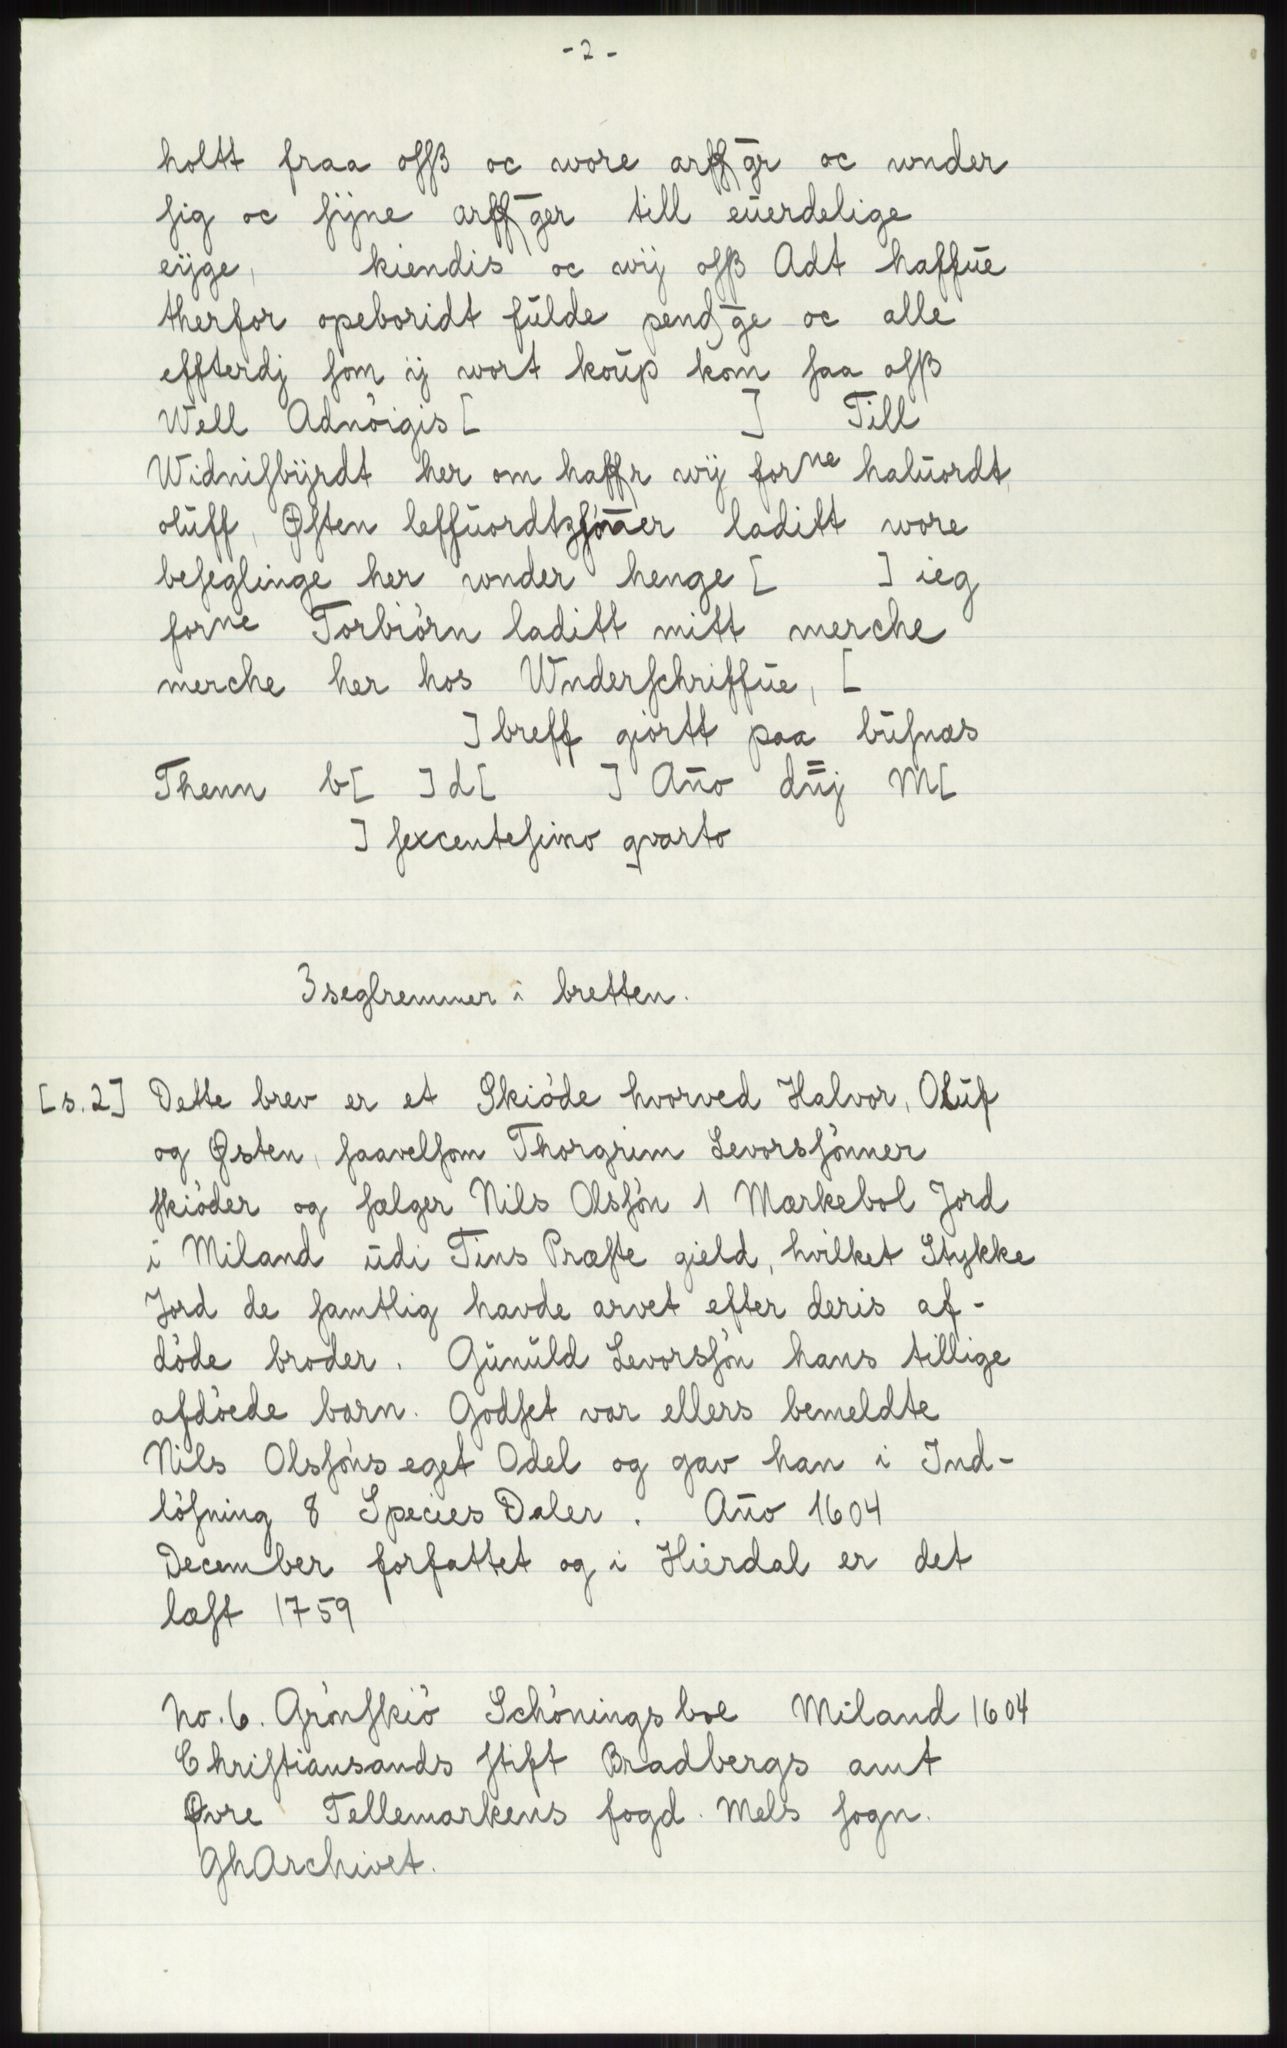 - 2 -
holtt fraa oſſß oc wore arffḡr oc wnder
ſig oc ſijne arffḡer till eŭerdelige
eÿge, kiendis oc wij oſß Adt haffŭe
therfor opeboridt fŭlde pendḡe oc alle
effterdj ſom ij wort koŭp kom ſaa oſß
Well Adnöigis [ ] Till
Widniſbÿrdt her om haffr wij forne halŭordt,
olŭff, Øſten leffŭordtzſön̄er laditt wore
beſeglinge her wnder henge [ ] ieg
forne Torbiörn laditt mitt merche
merche her hos Wnderſchriffŭe, [
] breff giortt paa bŭſnæs
Thenn b[ ] d[ ] Año dn̄j M[
] ſexcenteſimo qvarto
3 seglremmer i bretten.
[s. 2] Dette brev er et Skiöde hvorved Halvor, Olŭf
og Østen, ſaavelſom Thorgrim Levorsſönner
ſkiöder og ſælger Nils Olsſön 1 Markebol Jord
i Miland ŭdi Tins Præſte gield, hvilket Stykke
Jord de ſamtlig havde arvet efter deris af-
döde broder. Gŭnŭld Levorsſön hans tillige
afdöede barn. Godſet var ellers bemeldte
Nils Olsſöns eget Odel og gav han i Ind-
löſning 8 Species Daler. Año 1604
December forfattet og i Hierdal er det
læſt 1759
No. 6. Grönſkiö Schönings boe Miland 1604
Chriſtiansands ſtift Bradbergs amt
Øvre Tellemarkens fogd. Mels ſogn.
GhArchivet.